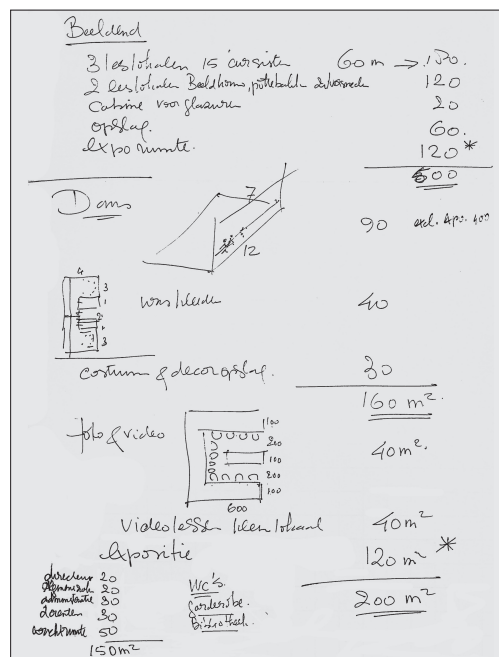 Beeldend
3 leslokalen 15 cursisten 60 m → 180.
2 leslokalen Beeldhouw, pottebakk 120
Cabine voor glazuren 20
opslag. 60.
Expo ruimte. 120*
500
Dans
7
12
90 excl. Expo. 400
4
3
1
2
1
3
was/kleden 40
costuum & decoropslag. 30
160 m².
foto & video 40 m².
100
200
100
200
100
600
Videolessen klein lokaal 40 m²
Expositie 120 m² *
200 m²
directeur 20
20
administratie 30
docenten 30
wachtruimte 50
150 m²
WC's.
Garderobe.
Bibliotheek.